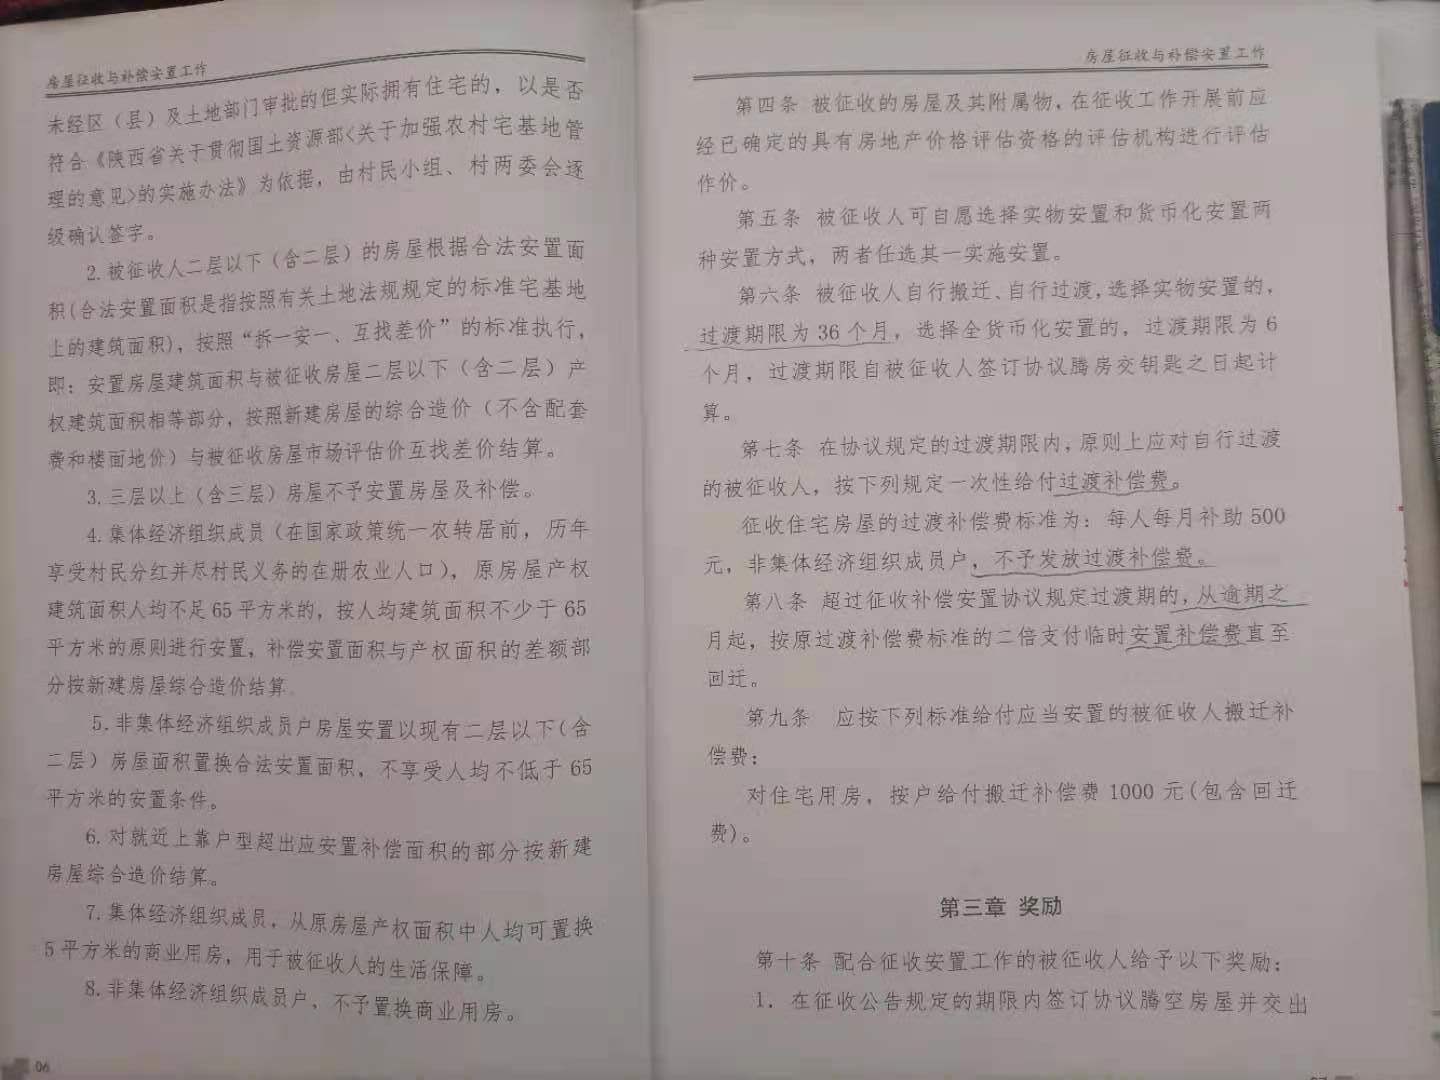 房屋征收与补偿安置工作
未经区（县）及土地部门审批的但实际拥有住宅的，以是否
符合《陕西省关于贯彻国土资源部<关于加强农村宅基地管
理的意见>的实施办法》为依据，由村民小组、村两委会逐
级确认签字。
2.被征收人二层以下（含二层）的房屋根据合法安置面
积(合法安置面积是指按照有关土地法规规定的标准宅基地
上的建筑面积)，按照“拆一安一、互找差价”的标准执行，
即：安置房屋建筑面积与被征收房屋二层以下（含二层）产
权建筑面积相等部分，按照新建房屋的综合造价（不含配套
费和楼面地价）与被征收房屋市场评估价互找差价结算。
3.三层以上（含三层）房屋不予安置房屋及补偿。
4.集体经济组织成员（在国家政策统一农转居前，历年
享受村民分红并尽村民义务的在册农业人口），原房屋产权
建筑面积人均不足65平方米的，按人均建筑面积不少于65
平方米的原则进行安置，补偿安置面积与产权面积的差额部
分按新建房屋综合造价结算
5.非集体经济组织成员户房屋安置以现有二层以下（含
二层）房屋面积置换合法安置面积，不享受人均不低于65
平方米的安置条件。
6.对就近上靠户型超出应安置补偿面积的部分按新建
房屋综合造价结算。
7.集体经济组织成员，从原房屋产权面积中人均可置换
5平方米的商业用房，用于被征收人的生活保障。
8.非集体经济组织成员户，不予置换商业用房。
06
房屋征收与补偿安置工作
第四条 被征收的房屋及其附属物，在征收工作开展前应
经已确定的具有房地产价格评估资格的评估机构进行评估
作价。
第五条 被征收人可自愿选择实物安置和货币化安置两
种安置方式，两者任选其一实施安置。
第六条 被征收人自行搬迁、自行过渡，选择实物安置的，
过渡期限为36个月，选择全货币化安置的，过渡期限为6
个月，过渡期限自被征收人签订协议腾房交钥匙之日起计
算。
第七条 在协议规定的过渡期限内，原则上应对自行过渡
的被征收人，按下列规定一次性给付过渡补偿费。
征收住宅房屋的过渡补偿费标准为：每人每月补助500
元，非集体经济组织成员户，不予发放过渡补偿费。
第八条 超过征收补偿安置协议规定过渡期的，从逾期之
月起，按原过渡补偿费标准的二倍支付临时安置补偿费直至
回迁。
第九条 应按下列标准给付应当安置的被征收人搬迁补
偿费：
对住宅用房，按户给付搬迁补偿费1000元(包含回迁
费)。
第三章 奖励
第十条 配合征收安置工作的被征收人给予以下奖励：
1. 在征收公告规定的期限内签订协议腾空房屋并交出